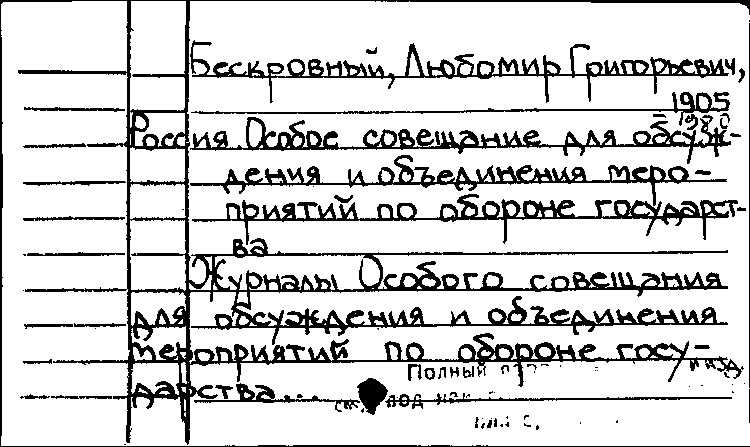 Бескровный, Любомир Григорьевич,
1905
- 1980
Россия. Особое совещание для обсуж-
дения и объединения меро-
приятий по обороне государст-
ва.
Журналы Особого совещания
для обсуждения и объединения
мероприятий по обороне госу-
дарства...
Полный
под